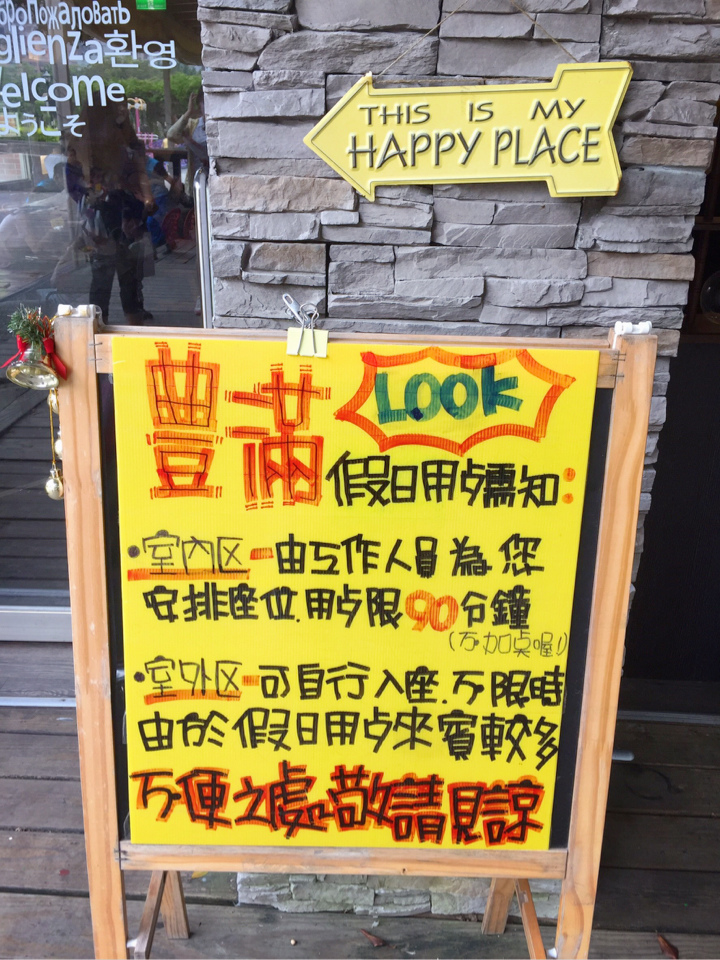 броПожаловать
glienza환영
elcome
ようこそ
THIS IS MY
HAPPY PLACE
LOOK
豐滿假日用歺需知:
•室內区-由工作人員為您
安排座位.用歺限90分鐘
(不加桌喔!)
•室外区-可自行入座.不限時
由於假日用歺來賓較多
不便之處敬請見諒